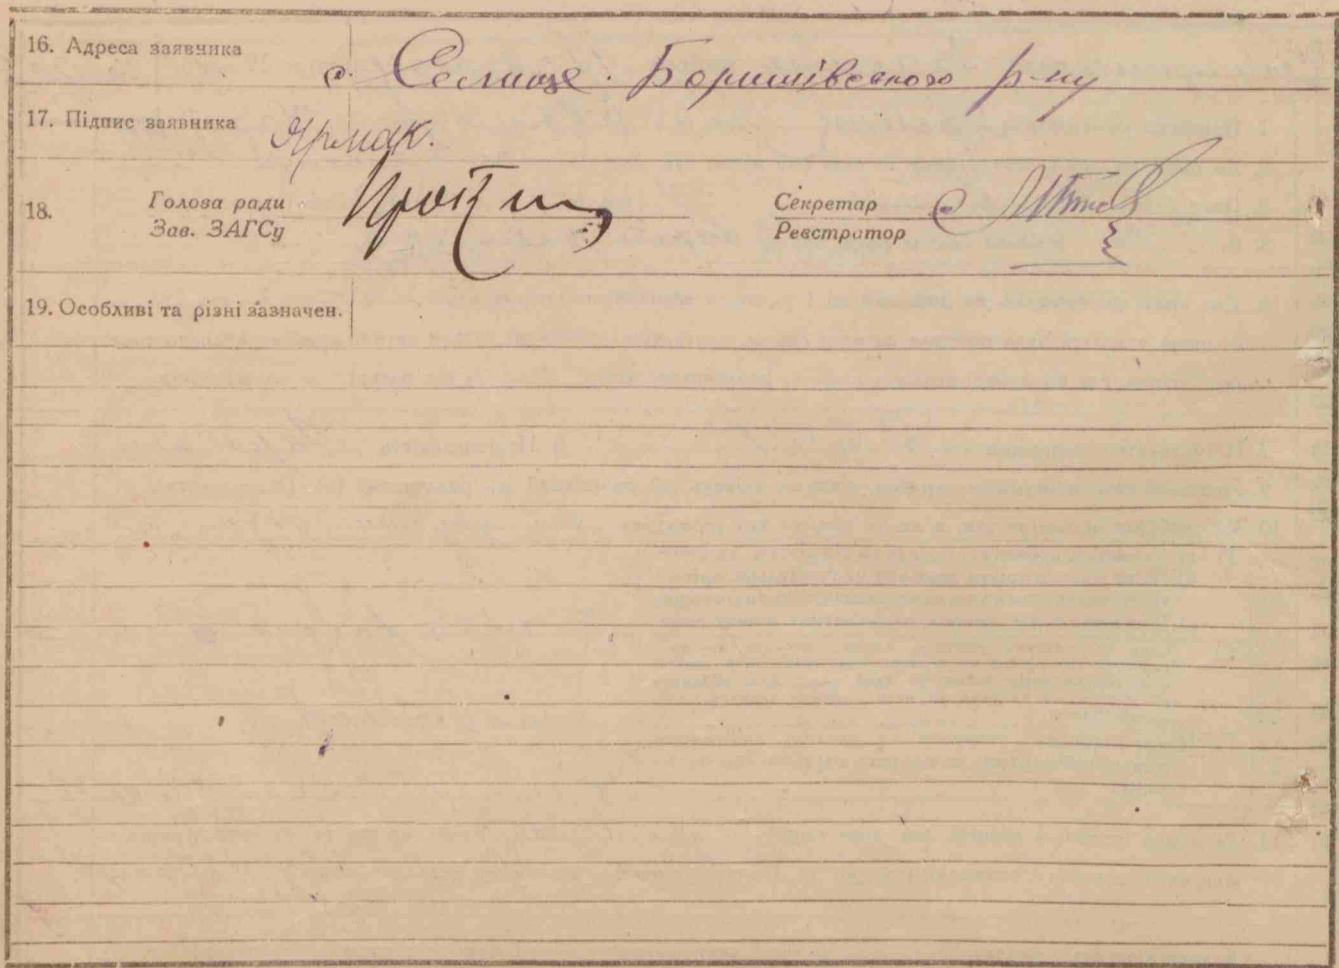 16. Адреса заявника
с. Селище. Боришівського р-ну
17. Підпис заявника Ярмак.
18. Голова ради Секретар
Зав. ЗАГСу Реєстратор
19. Особливі та різні зазначен.